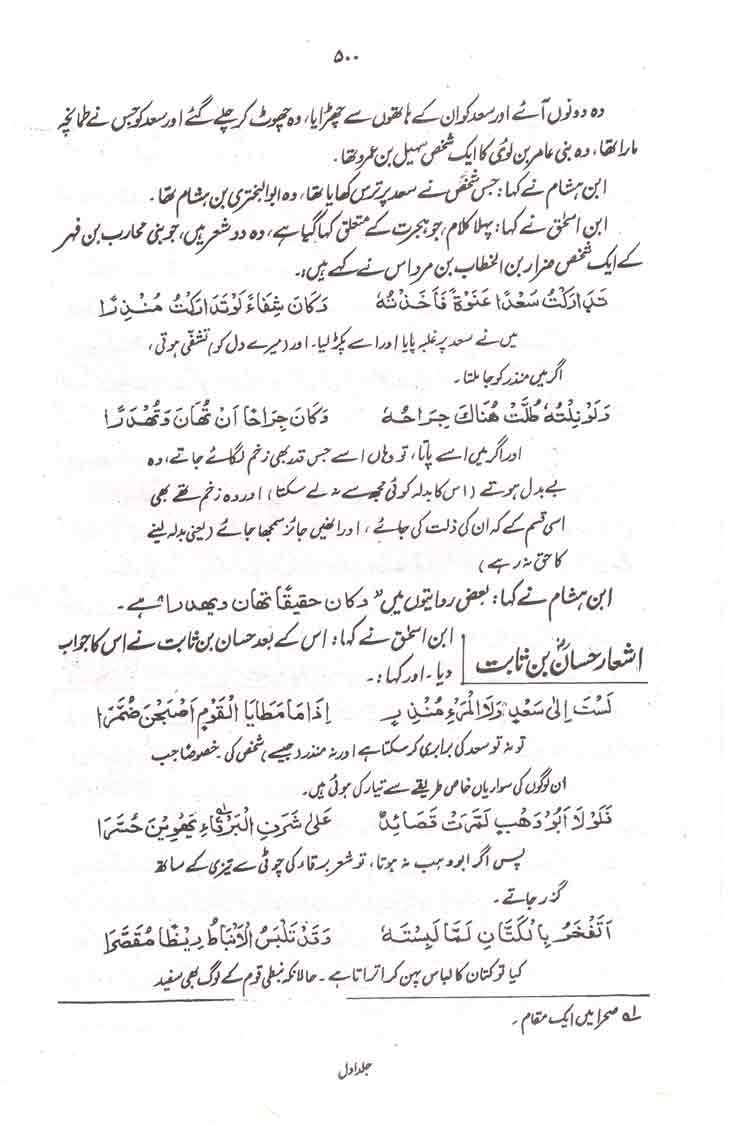 ۵۰۰
وہ دونوں آئے اور سعد کو ان کے ہاتھوں سے چھڑایا، وہ چھوٹ کر چلے گئے اور سعد کو جس نے طمانچہ
مارا تھا، وہ بنی عامر بن لوئی کا ایک شخص سہیل بن عمرو تھا۔
ابن ہشام نے کہا: جس شخص نے سعد پر ترس کھایا تھا، وہ ابو البختری بن ہشام تھا۔
ابن اسحٰق نے کہا: پہلا کلام، جو ہجرت کے متعلق کہا گیا ہے، وہ دو شعر ہیں، جو بنی محارب بن فہر
کے ایک شخص ضرار بن الخطاب بن مرداس نے کہے ہیں:۔
تَدَارَكْتُ سَعْدًا عَنْوَةً فَاَخَذْتُهٗ وَكَانَ شِفَاءً لَوْ تَدَارَكْتُ مُنْذِرًا
میں نے سعد پر غلبہ پایا اور اسے پکڑ لیا۔ اور (میرے دل کو) تشفّی ہوتی،
اگر میں منذر کو جا ملتا۔
وَلَوْ نِلْتُهٗ طُلَّتْ هُنَاكَ جِرَاحُهٗ وَكَانَ جِرَاحًا اَنْ تُهَانَ وَتُهْدَرًا
اور اگر میں اسے پاتا، تو وہاں اسے جس قدر بھی زخم لگائے جاتے، وہ
بے بدل ہوتے (اس کا بدلہ کوئی مجھ سے نہ لے سکتا) اور وہ زخم تھے بھی
اسی قسم کے کہ ان کی ذلت کی جائے، اور انھیں جائز سمجھا جائے (یعنی بدلہ لینے
کا حق نہ رہے)
ابن ہشام نے کہا: بعض روایتوں میں "وكان حقيقًا تهان ويهدرا" ہے۔
اشعار حسانؓ بن ثابت
ابن اسحٰق نے کہا: اس کے بعد حسان بن ثابت نے اس کا جواب
دیا۔ اور کہا:۔
لَسْتَ اِلىٰ سَعْدٍ وَلَا الْمَرْءِ مُنْذِرٍ اِذَا مَا مَطَايَا الْقَوْمِ اَصْبَحْنَ ضُمَّرَا
تو نہ تو سعد کی برابری کر سکتا ہے اور نہ منذر (جیسے) شخص کی۔ خصوصًا جب
ان لوگوں کی سواریاں خاص طریقے سے تیار کی ہوئی ہیں۔
فَلَوْلَا اَبُوْ وَهْبٍ لَمَرَّتْ قَصَائِدٌ عَلىٰ شَرَفِ الْبَرْقَاءِ ۱ه يَهْوِيْنَ حُسَّرَا
پس اگر ابو وہب نہ ہوتا، تو شعر برقاء کی چوٹی سے تیزی کے ساتھ
گزر جاتے۔
اَتَفْخَرُ بِالْكَتَّانِ لَمَّا لَبِسْتَهٗ وَقَدْ تَلْبَسُ الْاَنْبَاطُ رِيْطًا مُقَصَّرَا
کیا تو کتان کا لباس پہن کر اتراتا ہے۔ حالانکہ نبطی قوم کے لوگ بھی سفید
۱ه صحرا میں ایک مقام۔
جلد اول